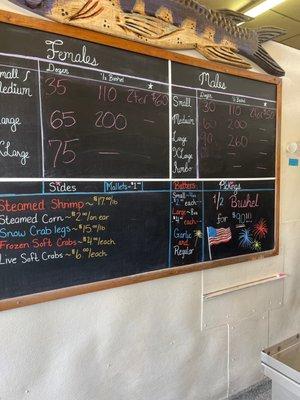 Females
Dozen 1/2 Bushel
Small
Medium 35 110 2 for $60
Large 65 200 —
XLarge 75 —
Males
Dozen 1/2 Bushel
Small 30 110 2 for $50
Medium 60 200 —
Large 90 260 —
XLarge
Jumbo
Sides Mallets ~ $1
Steamed Shrimp ~ $17/lb
Steamed Corn ~ $2/an ear
Snow Crab legs ~ $15/lb
Frozen Soft Crabs ~ /each
Live Soft Crabs ~ $6/each
Butters
Small ~
Large ~
Garlic
and
Regular
Pickings
1/2 Bushel
for $90